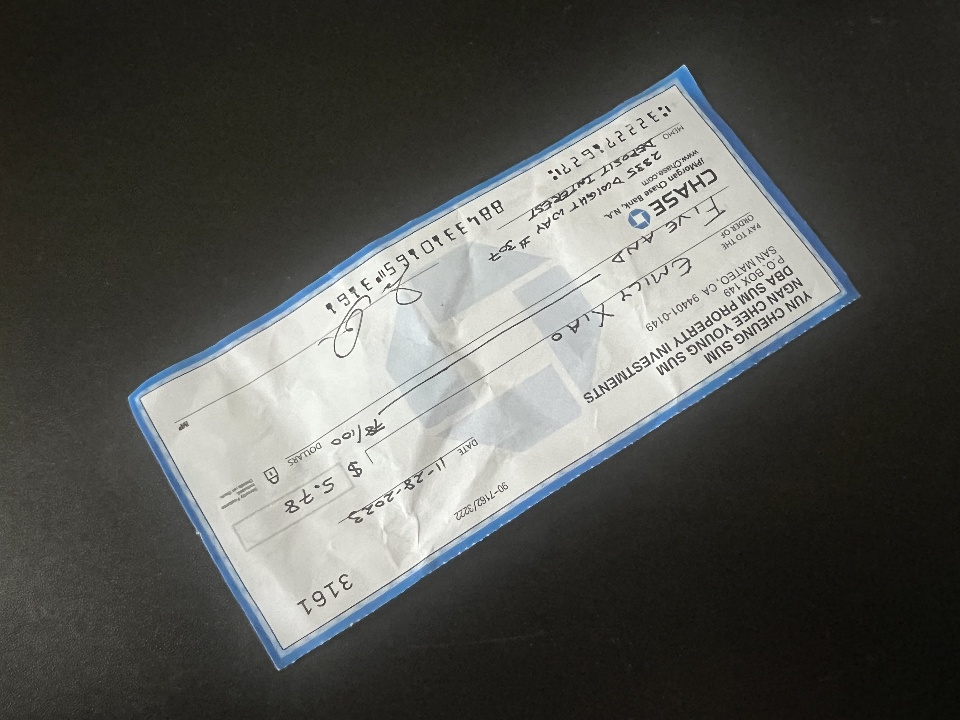 YUN CHEUNG SUM
NGAN CHEE YOUNG SUM
DBA SUM PROPERTY INVESTMENTS
P.O. BOX 149
SAN MATEO, CA 94401-0149
3161
90-7162/3222
DATE 11-28-2023
PAY TO THE
ORDER OF EMILY XIAO $ 5.78
FIVE AND 78/100 DOLLARS
Security Features
Details on Back.
CHASE
JPMorgan Chase Bank, N.A.
www.Chase.com
2335 DWIGHT WAY #307
MEMO DEPOSIT INTEREST
MP
⑆322271627⑆ 884331065⑈3161